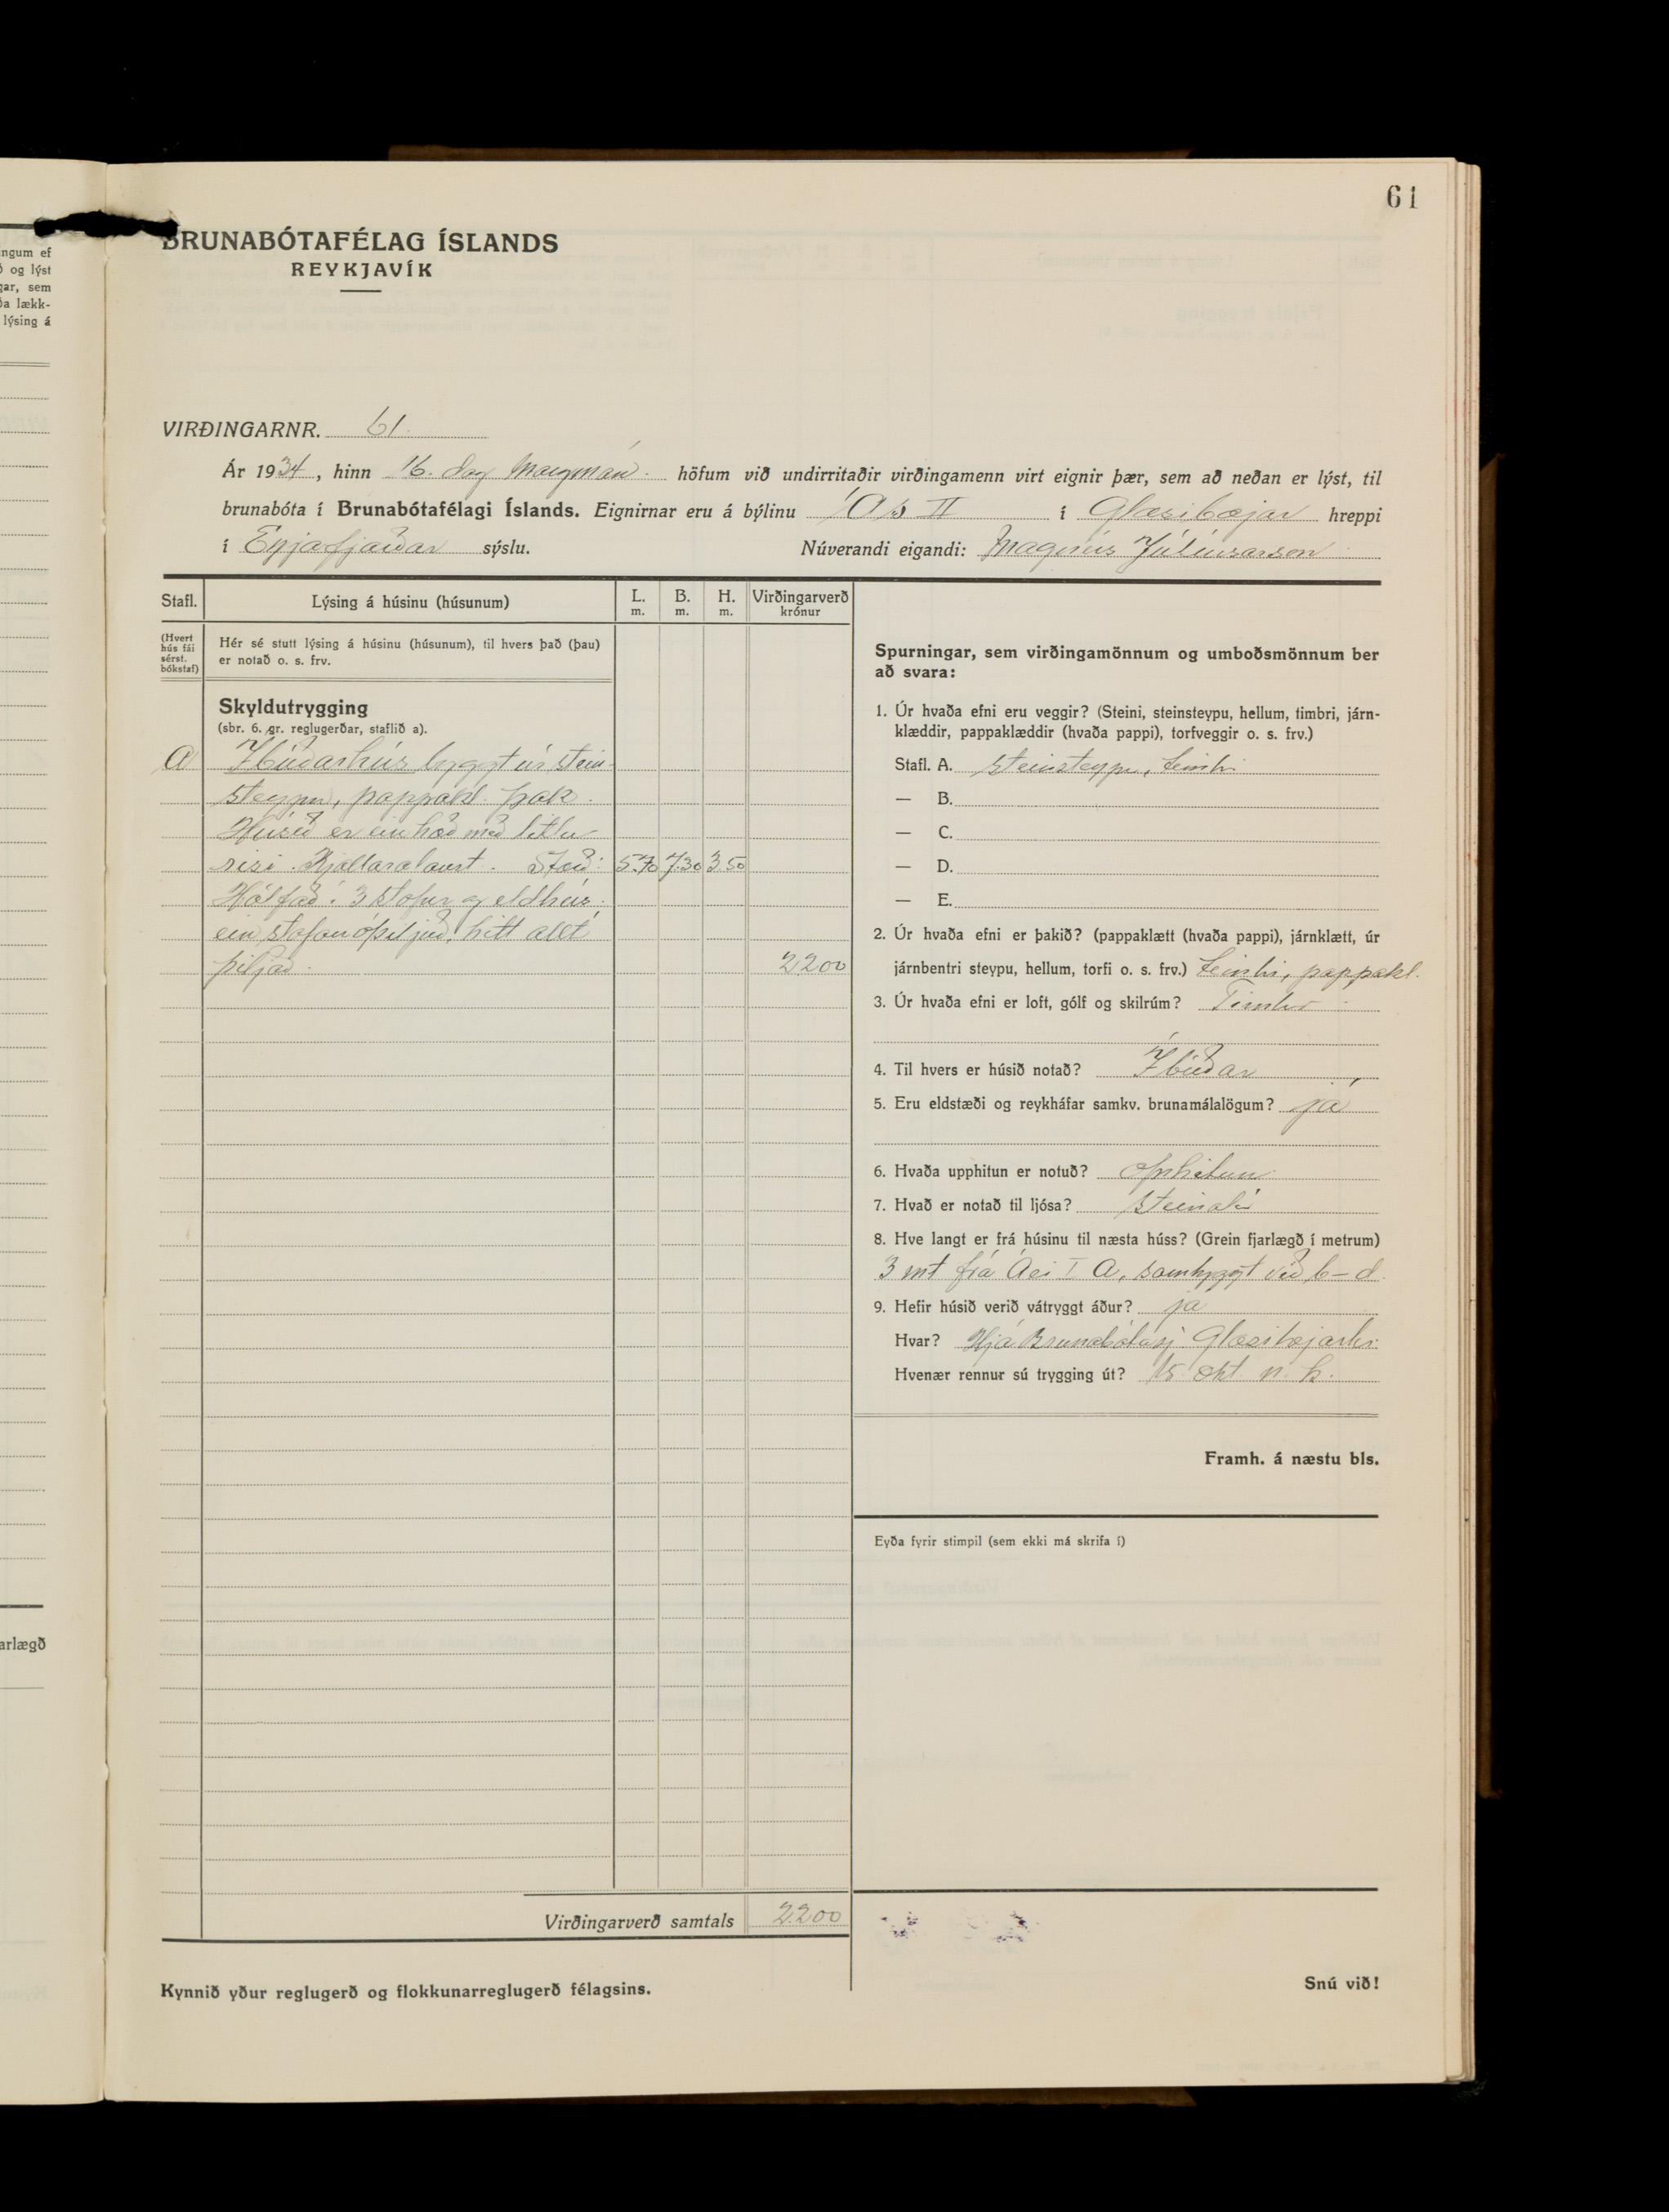 61
ingum ef
ð og lýst
gar, sem
ða lækk-
lýsing á
arlægð
BRUNABÓTAFÉLAG ÍSLANDS
REYKJAVÍK
VIRÐINGARNR. 61.
Ár 1934, hinn 16. dag höfum við undirritaðir virðingamenn virt eignir þær, sem að neðan er lýst, til
brunabóta í Brunabótafélagi Íslands. Eignirnar eru á býlinu Ás II í Glæsibæjar hreppi
í Eyjafjarðar sýslu. Núverandi eigandi: Magnús Júlíusarson
Stafl. Lýsing á húsinu (húsunum) L. m. B. m. H. m. Virðingarverð krónur
(Hvert hús fái sérst. bókstaf)
Hér sé stutt lýsing á húsinu (húsunum), til hvers það (þau)
er notað o. s. frv.
Skyldutrygging
(sbr. 6. gr. reglugerðar, staflið a).
A Íbúðarhús byggt úr stein-
steypu, pappakl. þak.
Húsið er ein hæð með litlu
risi. Kjallaralaust. Stærð: 5.70 7.30 3.50
Hólfað í 3 stofur og eldhús,
ein stofan óþiljuð, hitt allt
þiljað. 2200
Virðingarverð samtals 2200
Kynnið yður reglugerð og flokkunarreglugerð félagsins.
Spurningar, sem virðingamönnum og umboðsmönnum ber
að svara:
1. Úr hvaða efni eru veggir? (Steini, steinsteypu, hellum, timbri, járn-
klæddir, pappaklæddir (hvaða pappi), torfveggir o. s. frv.)
Stafl. A. steinsteypu, timbri
— B.
— C.
— D.
— E.
2. Úr hvaða efni er þakið? (pappaklætt (hvaða pappi), járnklætt, úr
járnbentri steypu, hellum, torfi o. s. frv.) timbri, pappakl.
3. Úr hvaða efni er loft, gólf og skilrúm? Timbur
4. Til hvers er húsið notað? Íbúðar
5. Eru eldstæði og reykháfar samkv. brunamálalögum? já
6. Hvaða upphitun er notuð? ofnhitun
7. Hvað er notað til ljósa? steinolía
8. Hve langt er frá húsinu til næsta húss? (Grein fjarlægð í metrum)
3 mt frá Ási I A, sambyggt við b-d
9. Hefir húsið verið vátryggt áður? já
Hvar? Hjá Brunabótasj. Glæsibæjarhr.
Hvenær rennur sú trygging út? 15. okt. n. k.
Framh. á næstu bls.
Eyða fyrir stimpil (sem ekki má skrifa í)
Snú við!